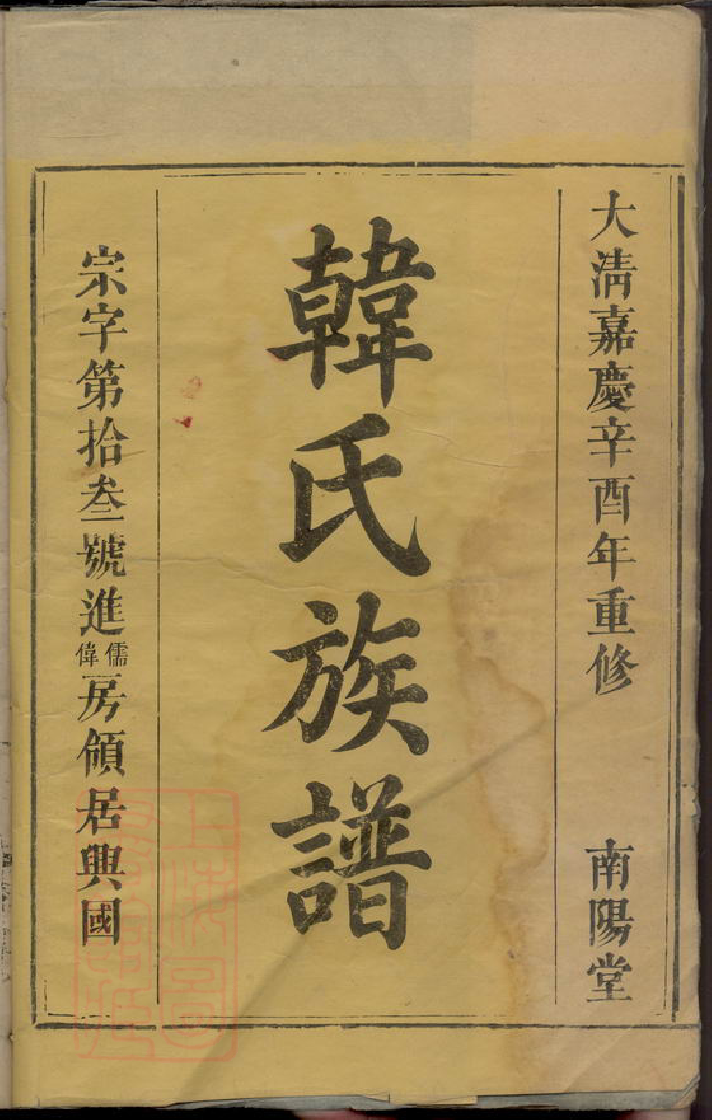 大淸嘉慶辛酉年重修　南陽堂
韓氏族譜
宗字第拾叁號進儒偉房領居興國